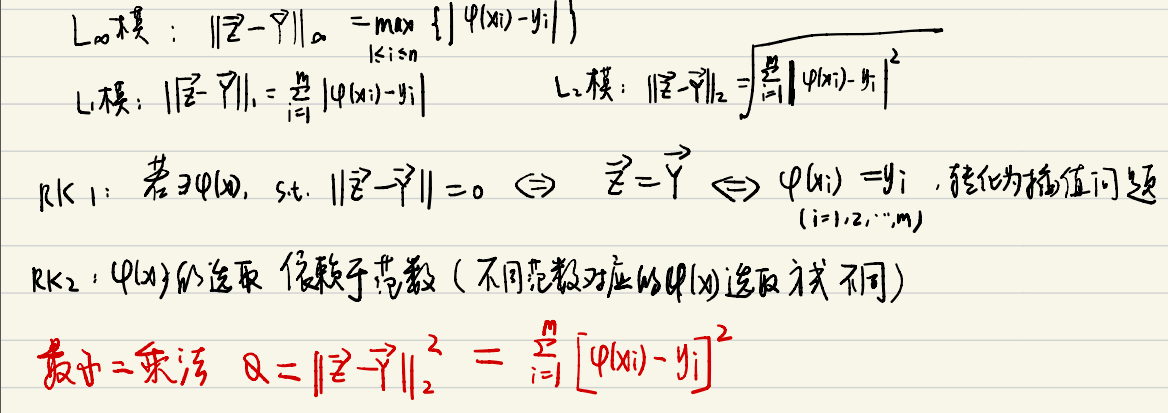 L∞模：‖Z⃗-Y⃗‖∞ = max_{1≤i≤n} {|φ(xi)-yi|}
L₁模：‖Z⃗-Y⃗‖₁ = ∑_{i=1}^{m} |φ(xi)-yi|  L₂模：‖Z⃗-Y⃗‖₂ = √(∑_{i=1}^{m} |φ(xi)-yi|²)
RK1：若∃φ(x), s.t. ‖Z⃗-Y⃗‖=0 ⇔ Z⃗=Y⃗ ⇔ φ(xi)=yi，转化为插值问题
(i=1,2,…,m)
RK2：φ(x)的选取 依赖于范数（不同范数对应的φ(x)选取方式不同）
最小二乘法 Q=‖Z⃗-Y⃗‖₂² = ∑_{i=1}^{m} [φ(xi)-yi]²